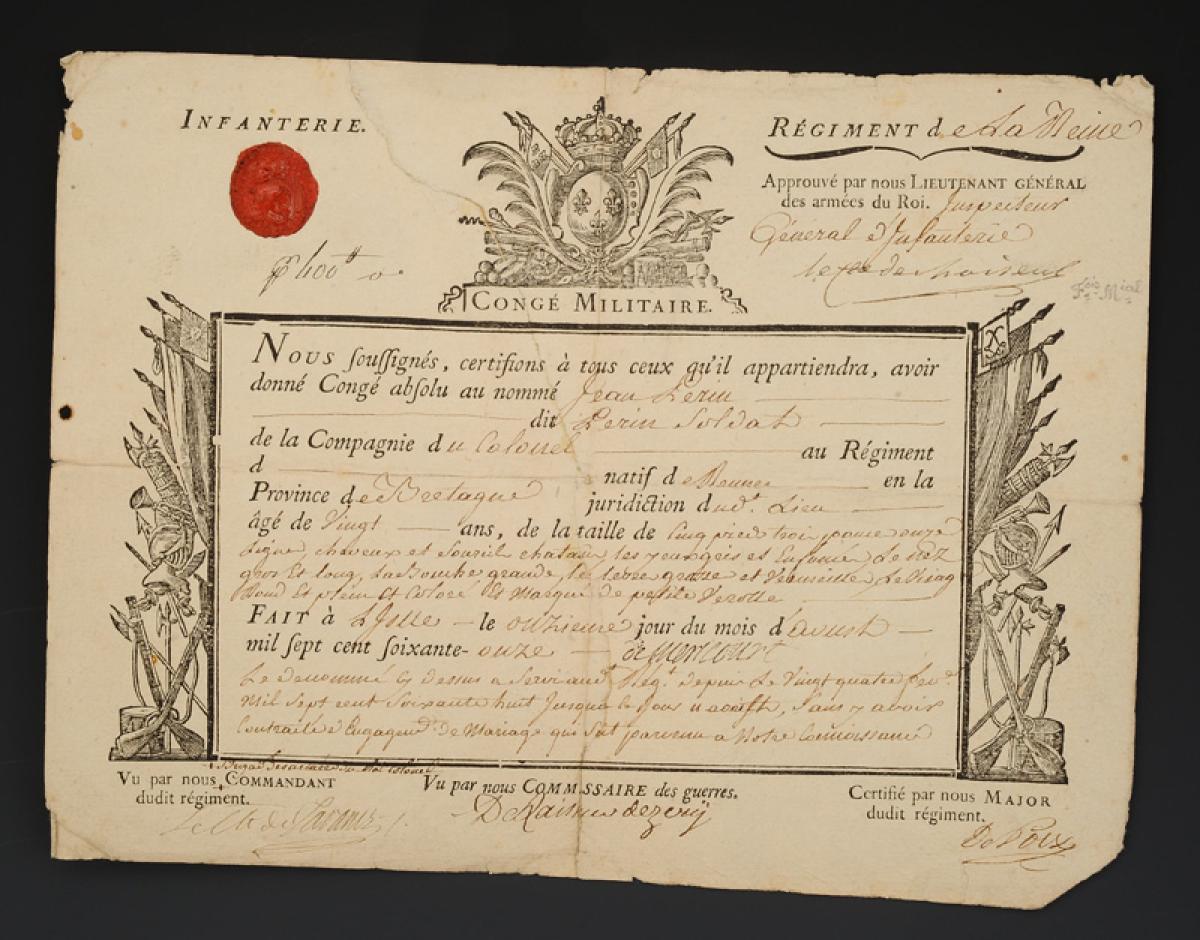 INFANTERIE.
RÉGIMENT de La Reine
Approuvé par nous LIEUTENANT GÉNÉRAL
des armées du Roi. Inspecteur
Général d'Infanterie
400
CONGÉ MILITAIRE.
NOUS souſſignés, certifions à tous ceux qu'il appartiendra, avoir
donné Congé abſolu au nommé Jean Perin
dit Perin Soldat
de la Compagnie du Colonel au Régiment
d natif de Rennes en la
Province de Bretagne juridiction dud.t Lieu
âgé de Vingt ans, de la taille de Cinq pied trois pouce onze
ligne, cheveux et Sourcil chatain les yeux gris et Enfoncé Le nez
gros Et long, La Bouche grande, les levre grosse et Vermeille Le Visag
Rond Et plein et Coloré Et Marqué de petite Verolle
FAIT à L'Isle le onzieme jour du mois d'Aoust
mil ſept cent ſoixante- onze
Le denommé cy dessus a Servi aud.t Reg.t depuis Le Vingt quatre fev.r
Mil Sept cent Soixante huit Jusqua ce jour 11 aoust, Sans y avoir
Contracté d'Engagem.t de Mariage qui Soit parvenu a Notre Connoissance
Vu par nous COMMANDANT
dudit régiment.
Vu par nous COMMISSAIRE des guerres.
Certifié par nous MAJOR
dudit régiment.
De Poix